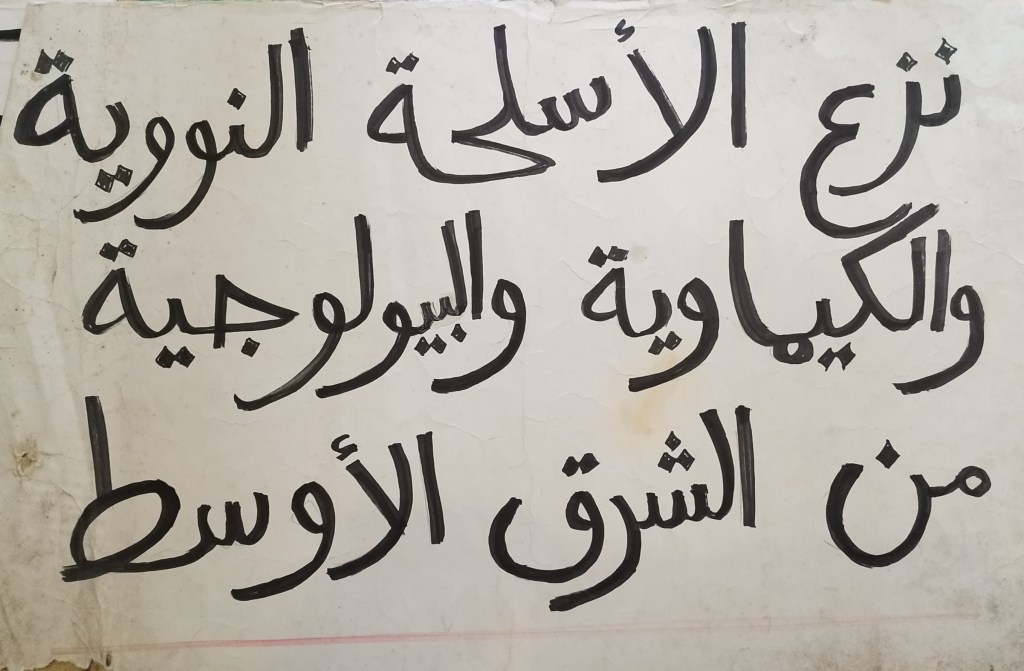 نزع الأسلحة النووية
والكيماوية والبيولوجية
من الشرق الأوسط